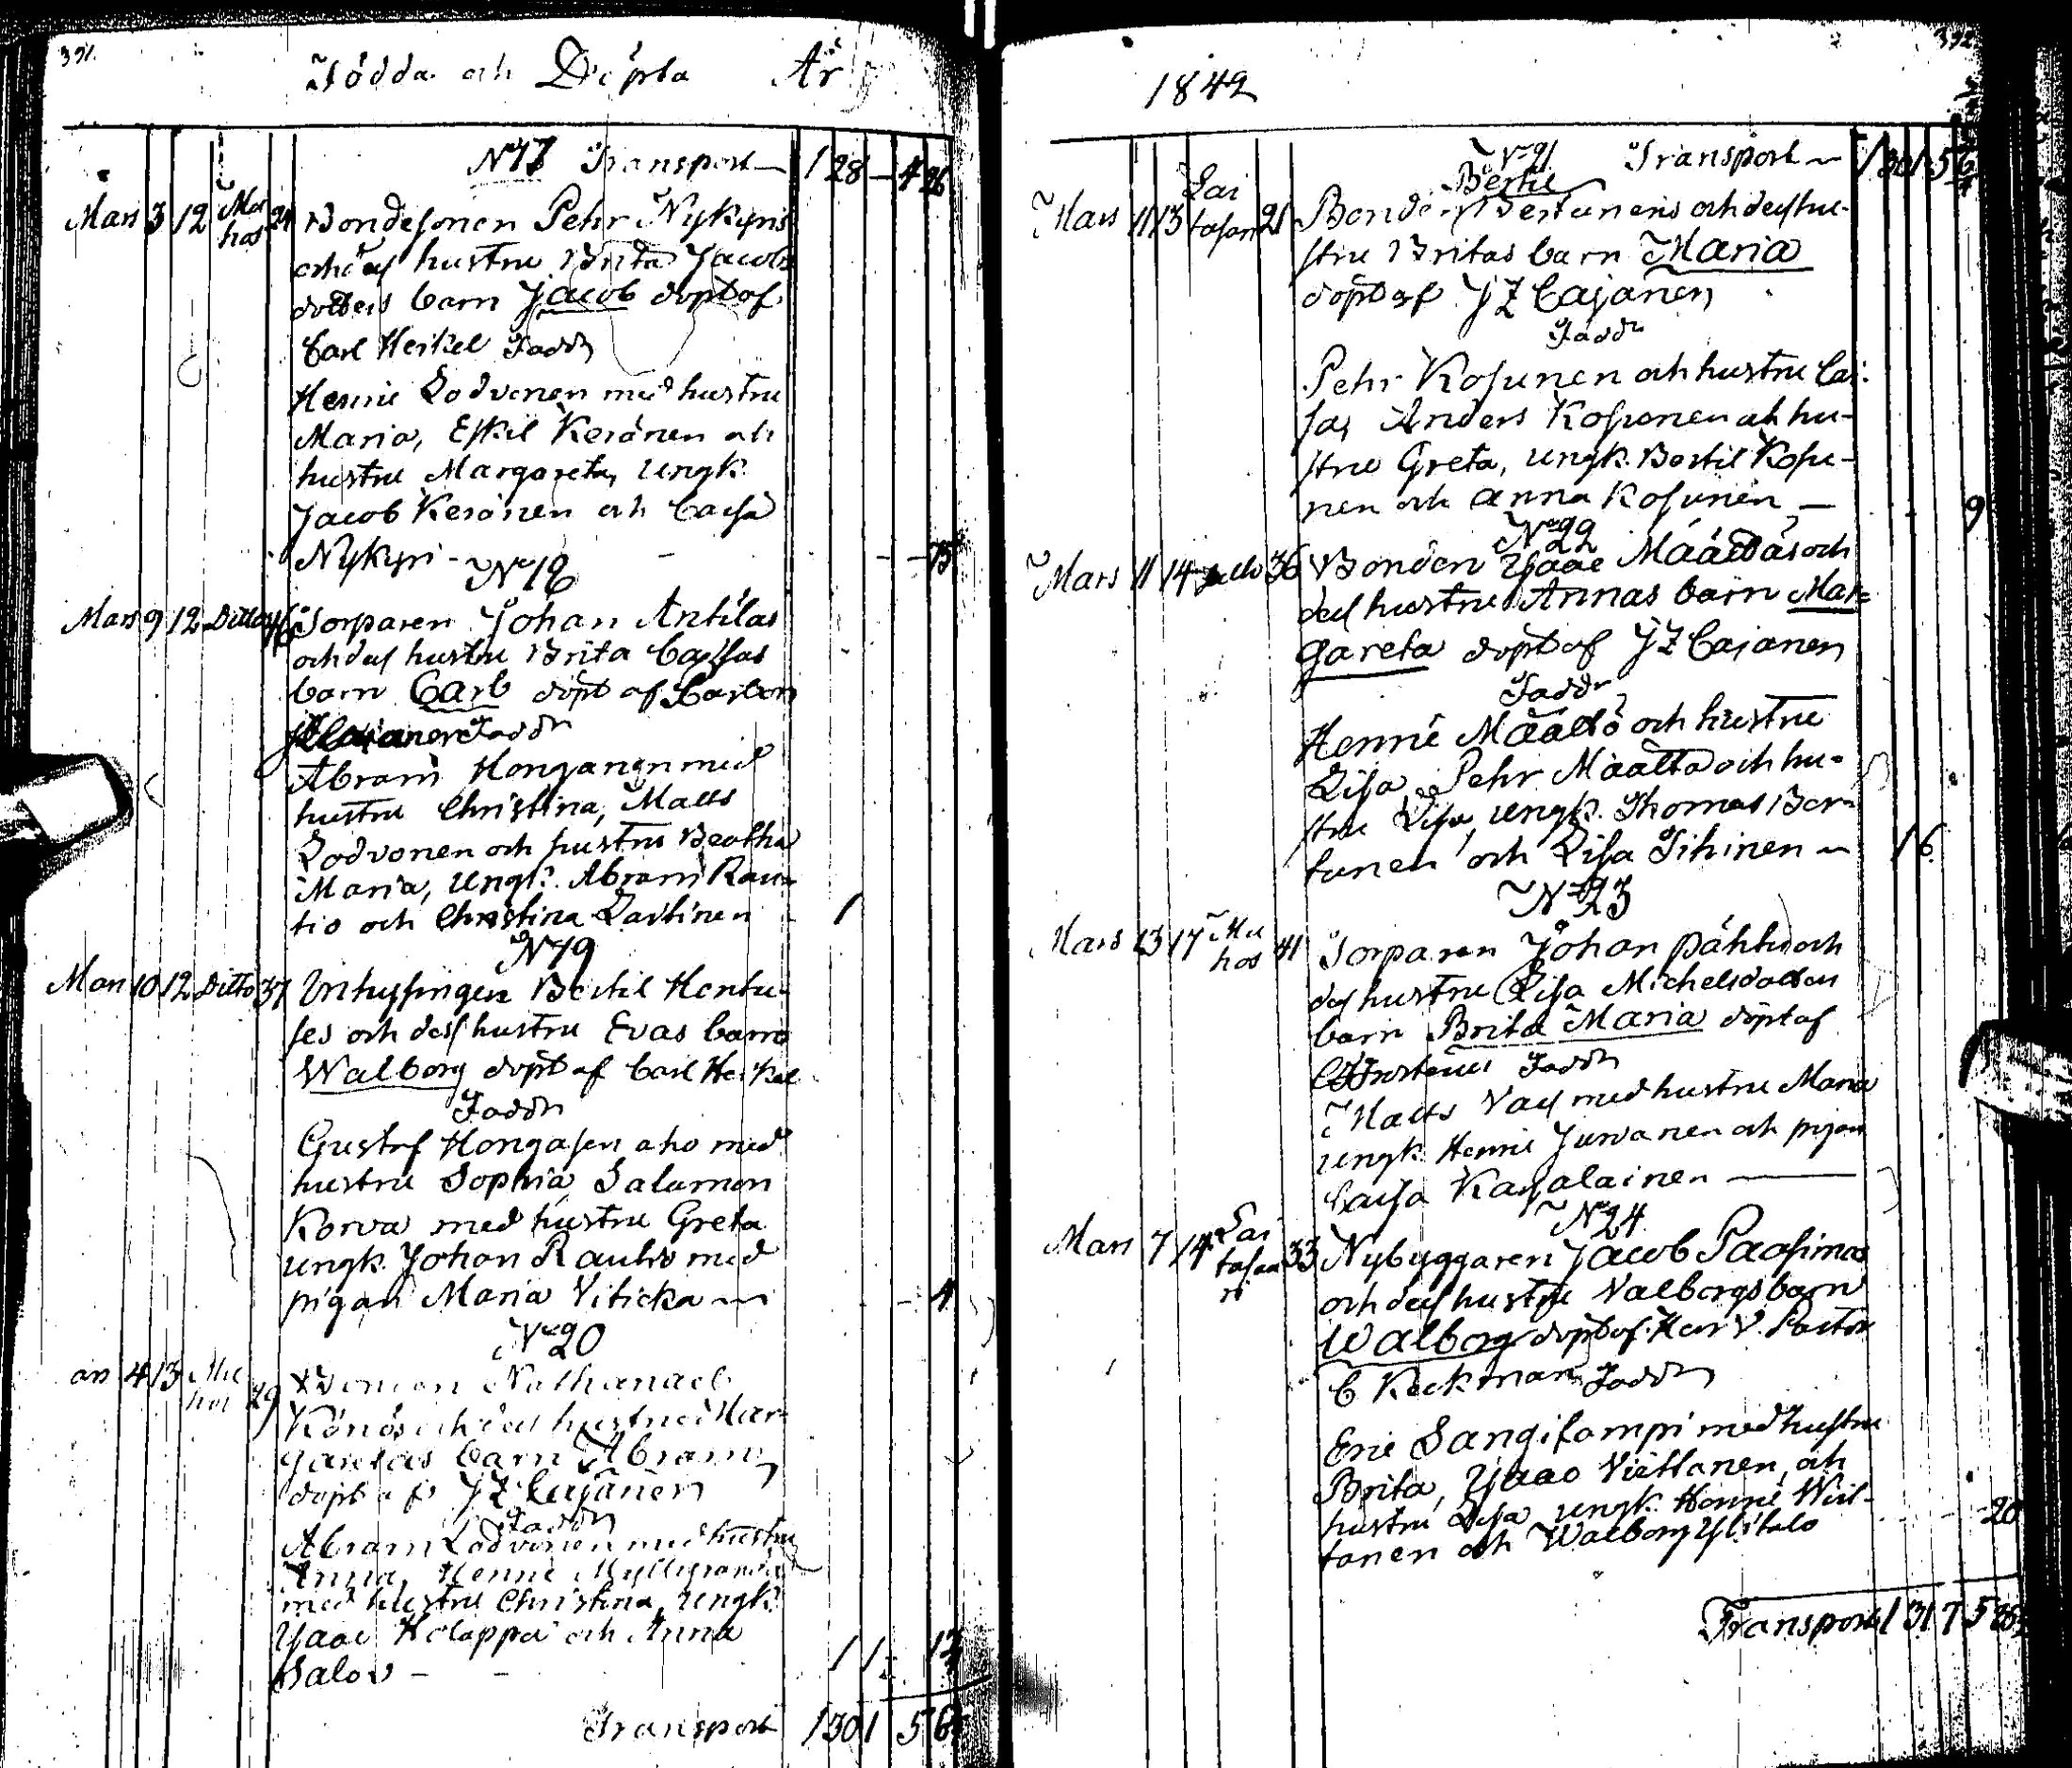 391.
Födda och Döpta År
N 17 Transport — 1 28 — 4 26
Mars 3 12 Mu
hos 24 Bondesonen Pehr Nykyris
och dess hustru Brita Jacobs
dotters barn Jacob döpt af
Carl Heikel Faddr
Henric Lodvonen med hustru
Maria, Eskil Keränen och
hustru Margareta, Ungk.
Jacob Keränen och Caisa
Nykyri - - - 15
N 18
Mars 9 12 Ditto Torparen Johan Antilas
och dess hustru Brita Cajsas
barn Carl döpt af
Faddr
Abram Honganen med
hustru Christina, Matts
Lodvonen och hustru Beatha
Maria, Ungk. Abram Rau-
tio och Christina Lartinen 1
N 19
Mars 10 12 Ditto 37 Inhysingen Bertil Hentu-
ses och dess hustru Evas barn
Walborg döpt af Carl Heikel
Faddr
Gustaf Hongasen aho med
hustru Sophia, Salamon
Korva med hustru Greta
ungk. Johan Rautio med
pigan Maria Viticka — - 4
N 20
ars 4 13 Mu
hos 29 Nathanael
Könös och dess hustru Mar-
garetas barn Abram,
döpt af J Z Cajanen
Faddr
Abram Lodvonen med hustru
Anna, Henric Mylly
med hustru Christina, Ungk.
Isaac Holappa och Anna
Salo - - 1 1 - 13
Transport 1 30 1 5
1842
392
N 21 Transport — 1 30 1 5
Bertil
Mars 11 13 Lai
tasari 21 Bonden Bertunens och dess hu-
stru Britas barn Maria
döpt af J Z Cajanen
Faddr
Pehr Kosunen och hustru Cai-
sa, Anders Kosunen och hu-
stru Greta, Ungk. Bertil Kosu-
nen och Anna Kosunen — 9
N 22
Mars 11 14 36 Bonden Isaac Määttäs och
dess hustru Annas barn Mar=
gareta döpt af J Z Cajanen
Faddr
Henric Määttä och hustru
Lisa, Pehr Määttä och hu-
stru Lisa, ungk. Thomas Ber-
tunen och Lisa Tihinen — 16
N 23
Mars 13 17 Mu
hos 41 Torparen Johan Pähti och
dess hustru Lisa Michelsdotters
barn Brita Maria döpt af
Faddr
Matts Vass med hustru Maria
ungk. Henric Juvanen och pigan
Caisa Karjalainen —
N 24
Mars 7 14 Lai
tasaa
ri 33 Nybyggaren Jacob Paasimas
och dess hustru Valborgs barn
Walborg döpt af Herr V. Pastor
C Keckman Faddr
Eric Sangilampi med hustru
Brita, Isaac Viettanen och
hustru Lisa ungk. Henric Wiet-
tanen och Walborg Ylitalo - - - 20
Transport 1 31 7 5